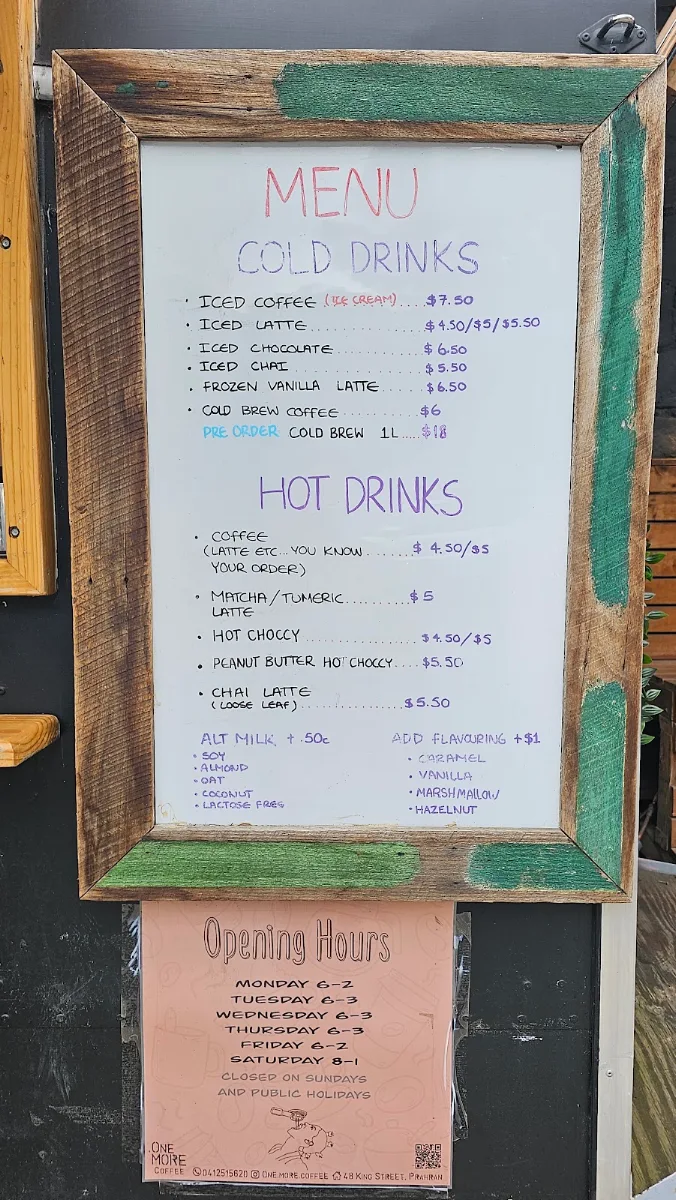 MENU
COLD DRINKS
· ICED COFFEE (ICE CREAM).... $7.50
· ICED LATTE............... $4.50/$5/$5.50
· ICED CHOCOLATE........... $6.50
· ICED CHAI................ $5.50
· FROZEN VANILLA LATTE...... $6.50
· COLD BREW COFFEE......... $6
PRE ORDER COLD BREW 1L..... $18
HOT DRINKS
· COFFEE
(LATTE ETC...YOU KNOW....... $4.50/$5
YOUR ORDER)
· MATCHA/TUMERIC.......... $5
LATTE
· HOT CHOCCY............... $4.50/$5
· PEANUT BUTTER HOT CHOCCY.... $5.50
· CHAI LATTE
(LOOSE LEAF)............. $5.50
ALT MILK, + .50c
· SOY
· ALMOND
· OAT
· COCONUT
· LACTOSE FREE
ADD FLAVOURING +$1
· CARAMEL
· VANILLA
· MARSHMALLOW
· HAZELNUT
Opening Hours
MONDAY 6-2
TUESDAY 6-3
WEDNESDAY 6-3
THURSDAY 6-3
FRIDAY 6-2
SATURDAY 8-1
CLOSED ON SUNDAYS
AND PUBLIC HOLIDAYS
ONE
MORE
COFFEE
0412515620 ONE.MORE.COFFEE 48 KING STREET, PRAHRAN